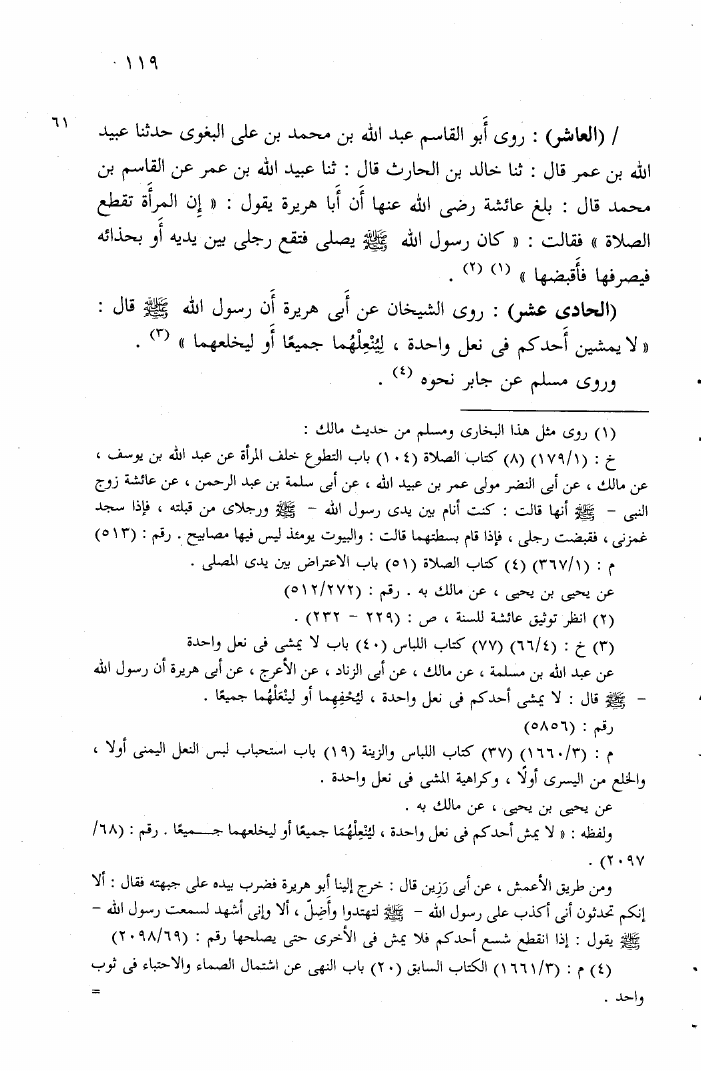 ١١٩
٦١
/ (العاشر) : روى أبو القاسم عبد الله بن محمد بن على البغوى حدثنا عبيد
الله بن عمر قال : ثنا خالد بن الحارث قال : ثنا عبيد الله بن عمر عن القاسم بن
محمد قال : بلغ عائشة رضى الله عنها أن أبا هريرة يقول : « إن المرأة تقطع
الصلاة » فقالت : « كان رسول الله ﷺ يصلى فتقع رجلى بين يديه أو بحذائه
فيصرفها فأقبضها » (١) (٢) .
(الحادى عشر) : روى الشيخان عن أبى هريرة أن رسول الله ﷺ قال :
« لا يمشين أحدكم فى نعل واحدة ، لِيُنْعِلْهُما جميعًا أو ليخلعهما » (٣) .
وروى مسلم عن جابر نحوه (٤) .
(١) روى مثل هذا البخارى ومسلم من حديث مالك :
خ : (١/١٧٩) (٨) كتاب الصلاة (١٠٤) باب التطوع خلف المرأة عن عبد الله بن يوسف ،
عن مالك ، عن أبى النضر مولى عمر بن عبيد الله ، عن أبى سلمة بن عبد الرحمن ، عن عائشة زوج
النبى – ﷺ أنها قالت : كنت أنام بين يدى رسول الله – ﷺ ورجلاى من قبلته ، فإذا سجد
غمزنى ، فقبضت رجلى ، فإذا قام بسطتهما قالت : والبيوت يومئذ ليس فيها مصابيح . رقم : (٥١٣)
م : (١/٣٦٧) (٤) كتاب الصلاة (٥١) باب الاعتراض بين يدى المصلى .
عن يحيى بن يحيى ، عن مالك به . رقم : (٥١٢/٢٧٢)
(٢) انظر توثيق عائشة للسنة ، ص : (٢٢٩ – ٢٣٢) .
(٣) خ : (٤/٦٦) (٧٧) كتاب اللباس (٤٠) باب لا يمشى فى نعل واحدة
عن عبد الله بن مسلمة ، عن مالك ، عن أبى الزناد ، عن الأعرج ، عن أبى هريرة أن رسول الله
– ﷺ قال : لا يمشى أحدكم فى نعل واحدة ، ليُحْفِهِما أو لينْعلْهُما جميعًا .
رقم : (٥٨٥٦)
م : (٣/١٦٦٠) (٣٧) كتاب اللباس والزينة (١٩) باب استحباب لبس النعل اليمنى أولا ،
والخلع من اليسرى أولًا ، وكراهية المشى فى نعل واحدة .
عن يحيى بن يحيى ، عن مالك به .
ولفظه : « لا يمش أحدكم فى نعل واحدة ، ليُنْعِلْهُمَا جميعًا أو ليخلعهما جـــميعًا . رقم : (٦٨/
٢٠٩٧) .
ومن طريق الأعمش ، عن أبى رَزِين قال : خرج إلينا أبو هريرة فضرب بيده على جبهته فقال : ألا
إنكم تحدثون أنى أكذب على رسول الله – ﷺ لتهتدوا وأَضِلّ ، ألا وإنى أشهد لسمعت رسول الله –
ﷺ يقول : إذا انقطع شسع أحدكم فلا يمش فى الأخرى حتى يصلحها رقم : (٢٠٩٨/٦٩)
(٤) م : (٣/١٦٦١) الكتاب السابق (٢٠) باب النهى عن اشتمال الصماء والاحتباء فى ثوب
واحد . =